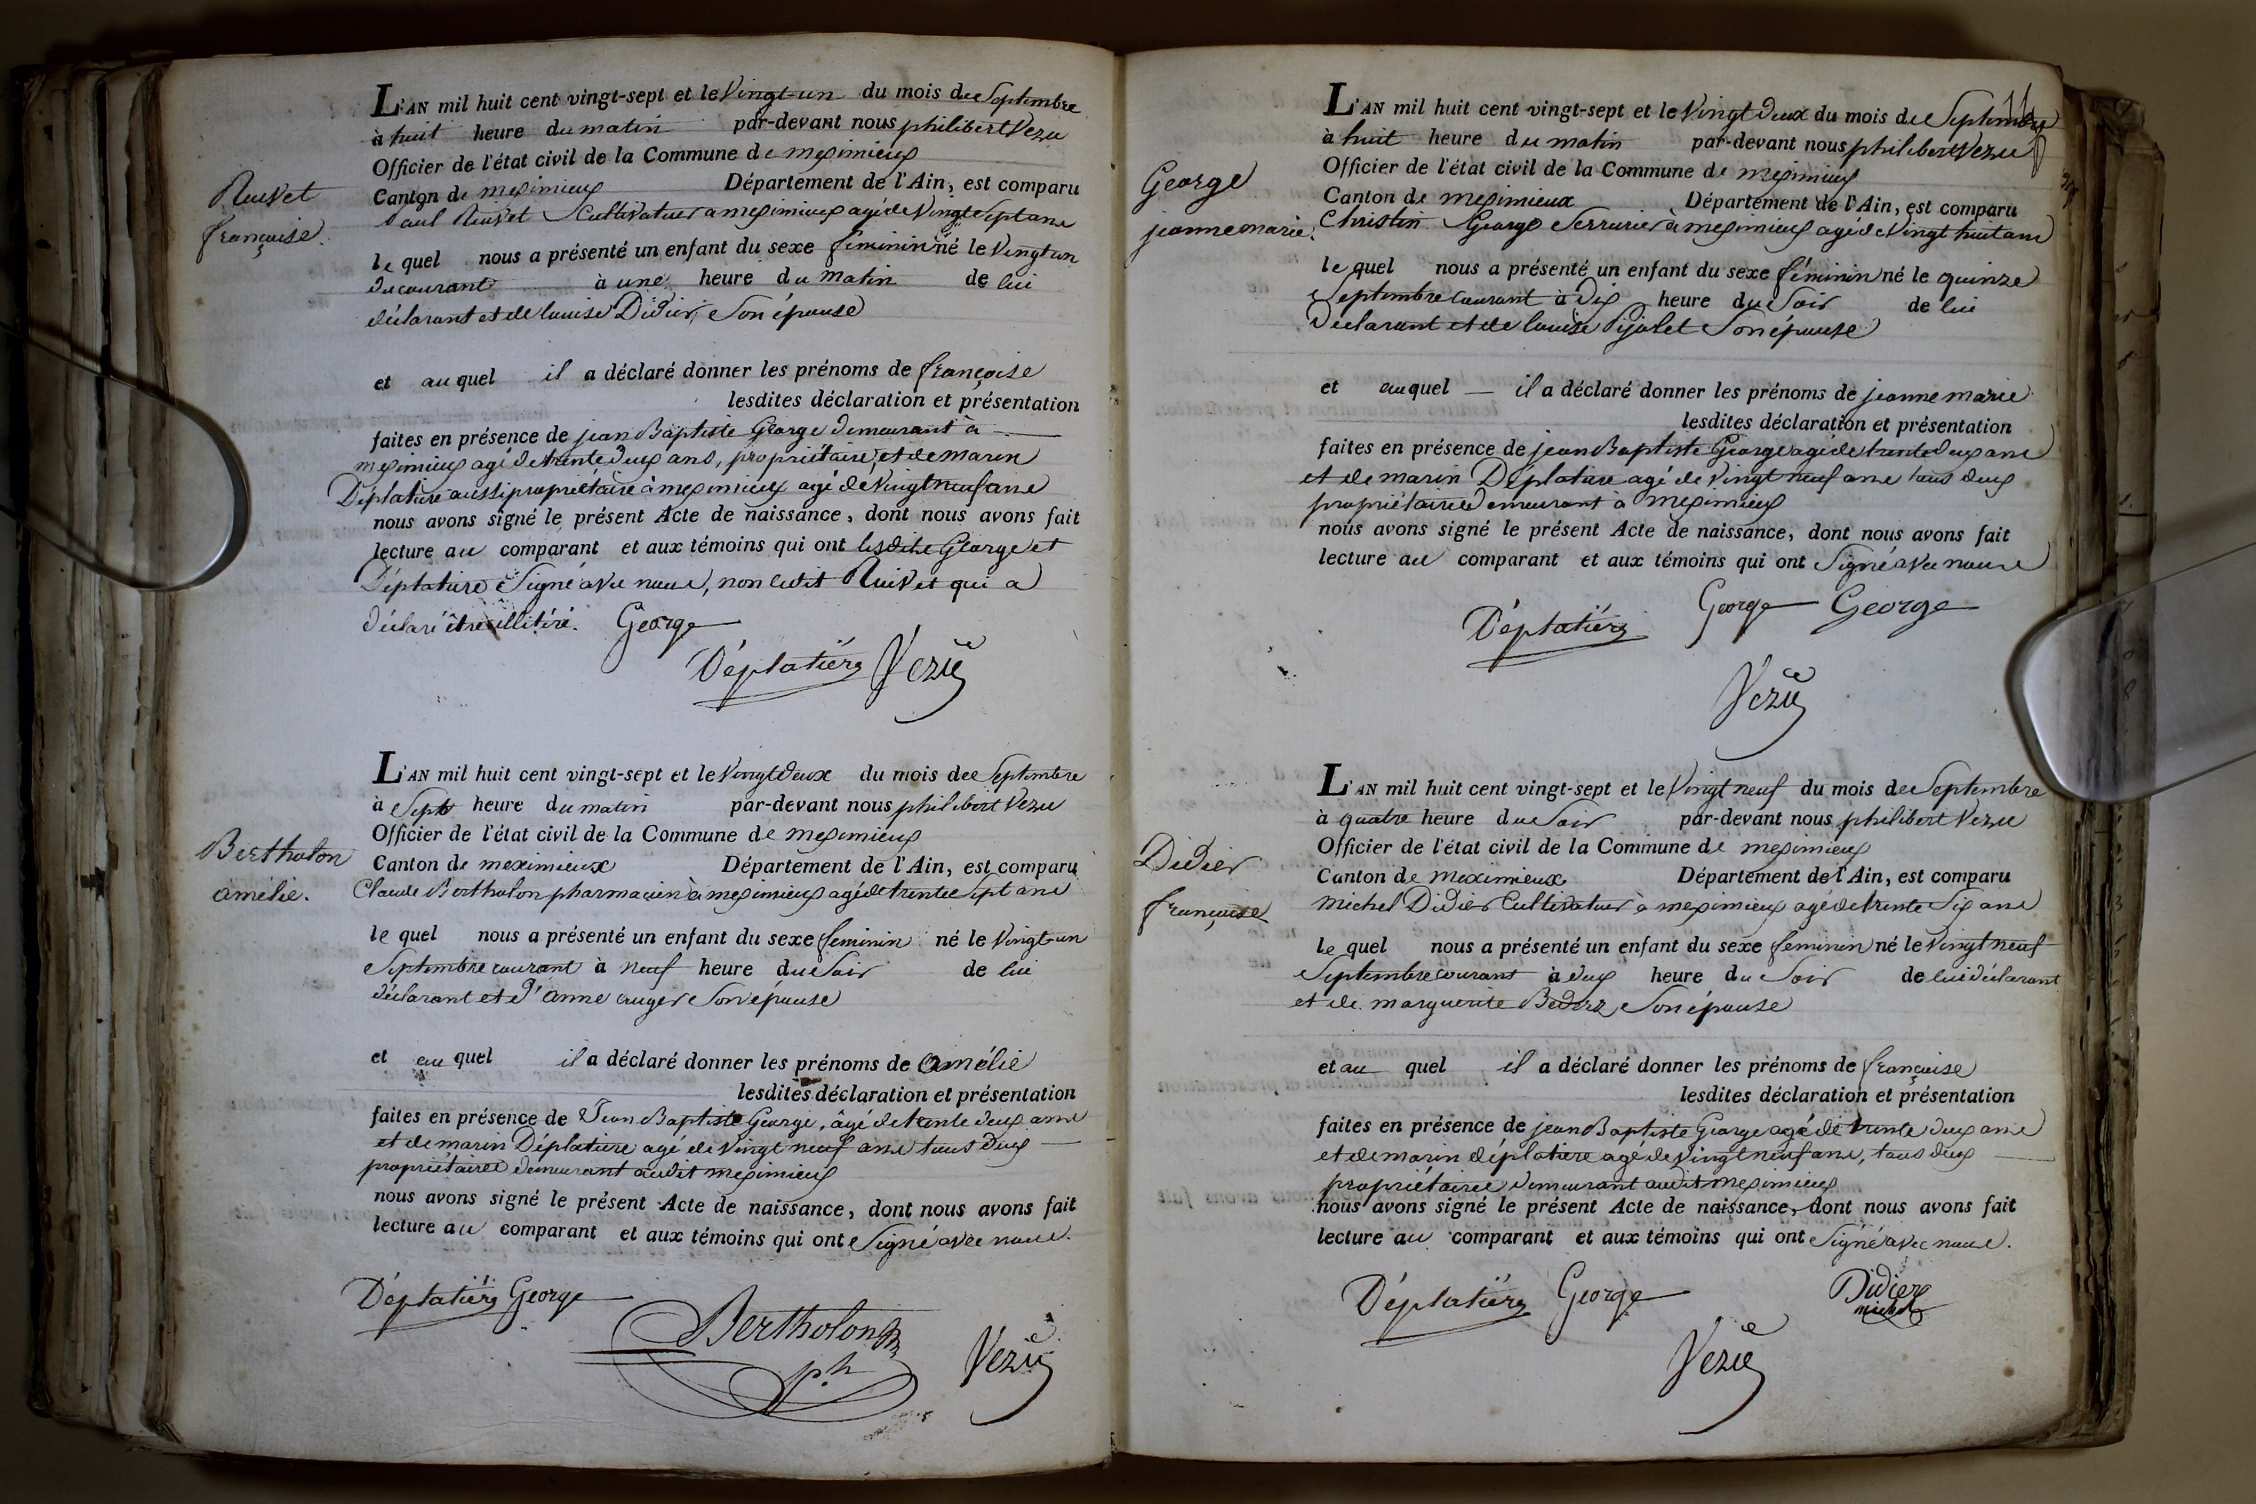 Ruivet
françoise.
L'AN mil huit cent vingt-sept et le Vingt-un du mois de Septembre
à huit heure du matin par-devant nous philibert Vezu
Officier de l'état civil de la Commune de meximieux
Canton de meximieux Département de l'Ain, est comparu
paul Ruivet Cultivateur a meximieux agé de Vingt Sept ans
le quel nous a présenté un enfant du sexe feminin né le Vingt un
du courant à une heure du matin de lui
déclarant et de louise Didier, Son épouse
et au quel il a déclaré donner les prénoms de françoise
lesdites déclaration et présentation
faites en présence de jean Baptiste George demeurant à
meximieux agé de trente deux ans, propriétaire, et de marin
Déplature aussi propriétaire à meximieux agé de Vingt neuf ans
nous avons signé le présent Acte de naissance, dont nous avons fait
lecture au comparant et aux témoins qui ont lesdits George et
Déplature Signé avec nous, non ledit Ruivet qui a
déclaré être illitéré. George
Déplatière Vezu
Bertholon
amélie.
L'AN mil huit cent vingt-sept et le Vingt deux du mois de Septembre
à Sept heure du matin par-devant nous philibert Vezu
Officier de l'état civil de la Commune de meximieux
Canton de meximieux Département de l'Ain, est comparu
Claude Bertholon pharmacien à meximieux agé de trente Sept ans
le quel nous a présenté un enfant du sexe feminin né le Vingt-un
Septembre courant à neuf heure du Soir de lui
déclarant et d'anne cruger Son épouse
et au quel il a déclaré donner les prénoms de amélie
lesdites déclaration et présentation
faites en présence de Jean Baptiste George, âgé de trente deux ans
et de marin Déplature agé de Vingt neuf ans tous deux
propriétaires demeurant audit meximieux
nous avons signé le présent Acte de naissance, dont nous avons fait
lecture au comparant et aux témoins qui ont Signé avec nous.
Déplatière George
Bertholon
ph
Vezu
George
jeanne marie.
L'AN mil huit cent vingt-sept et le Vingt Deux du mois de Septembre
à huit heure du matin par-devant nous philibert Vezu
Officier de l'état civil de la Commune de meximieux
Canton de meximieux Département de l'Ain, est comparu
Christin George Serrurier à meximieux agé de Vingt huit ans
le quel nous a présenté un enfant du sexe féminin né le quinze
Septembre courant à Dix heure du Soir de lui
Déclarant et de louise Pijolet Son épouse
et au quel il a déclaré donner les prénoms de jeanne marie
lesdites déclaration et présentation
faites en présence de jean Baptiste George agé de trente deux ans
et de marin Déplature agé de Vingt neuf ans tous deux
propriétaires demeurant à meximieux
nous avons signé le présent Acte de naissance, dont nous avons fait
lecture au comparant et aux témoins qui ont Signé avec nous
Déplatière George George
Vezu
Didier
françoise
L'AN mil huit cent vingt-sept et le Vingt neuf du mois de Septembre
à quatre heure du Soir par-devant nous philibert Vezu
Officier de l'état civil de la Commune de meximieux
Canton de meximieux Département de l'Ain, est comparu
michel Didier Cultivateur à meximieux agé de trente Six ans
le quel nous a présenté un enfant du sexe feminin né le Vingt neuf
Septembre courant à deux heure du Soir de lui déclarant
et de marguerite Son épouse
et au quel il a déclaré donner les prénoms de françoise
lesdites déclaration et présentation
faites en présence de jean Baptiste George agé de trente deux ans
et de marin déplature agé de Vingt neuf ans, tous deux
propriétaires demeurant audit meximieux
nous avons signé le présent Acte de naissance, dont nous avons fait
lecture au comparant et aux témoins qui ont Signé avec nous.
Déplatière George Didier
michel
Vezu